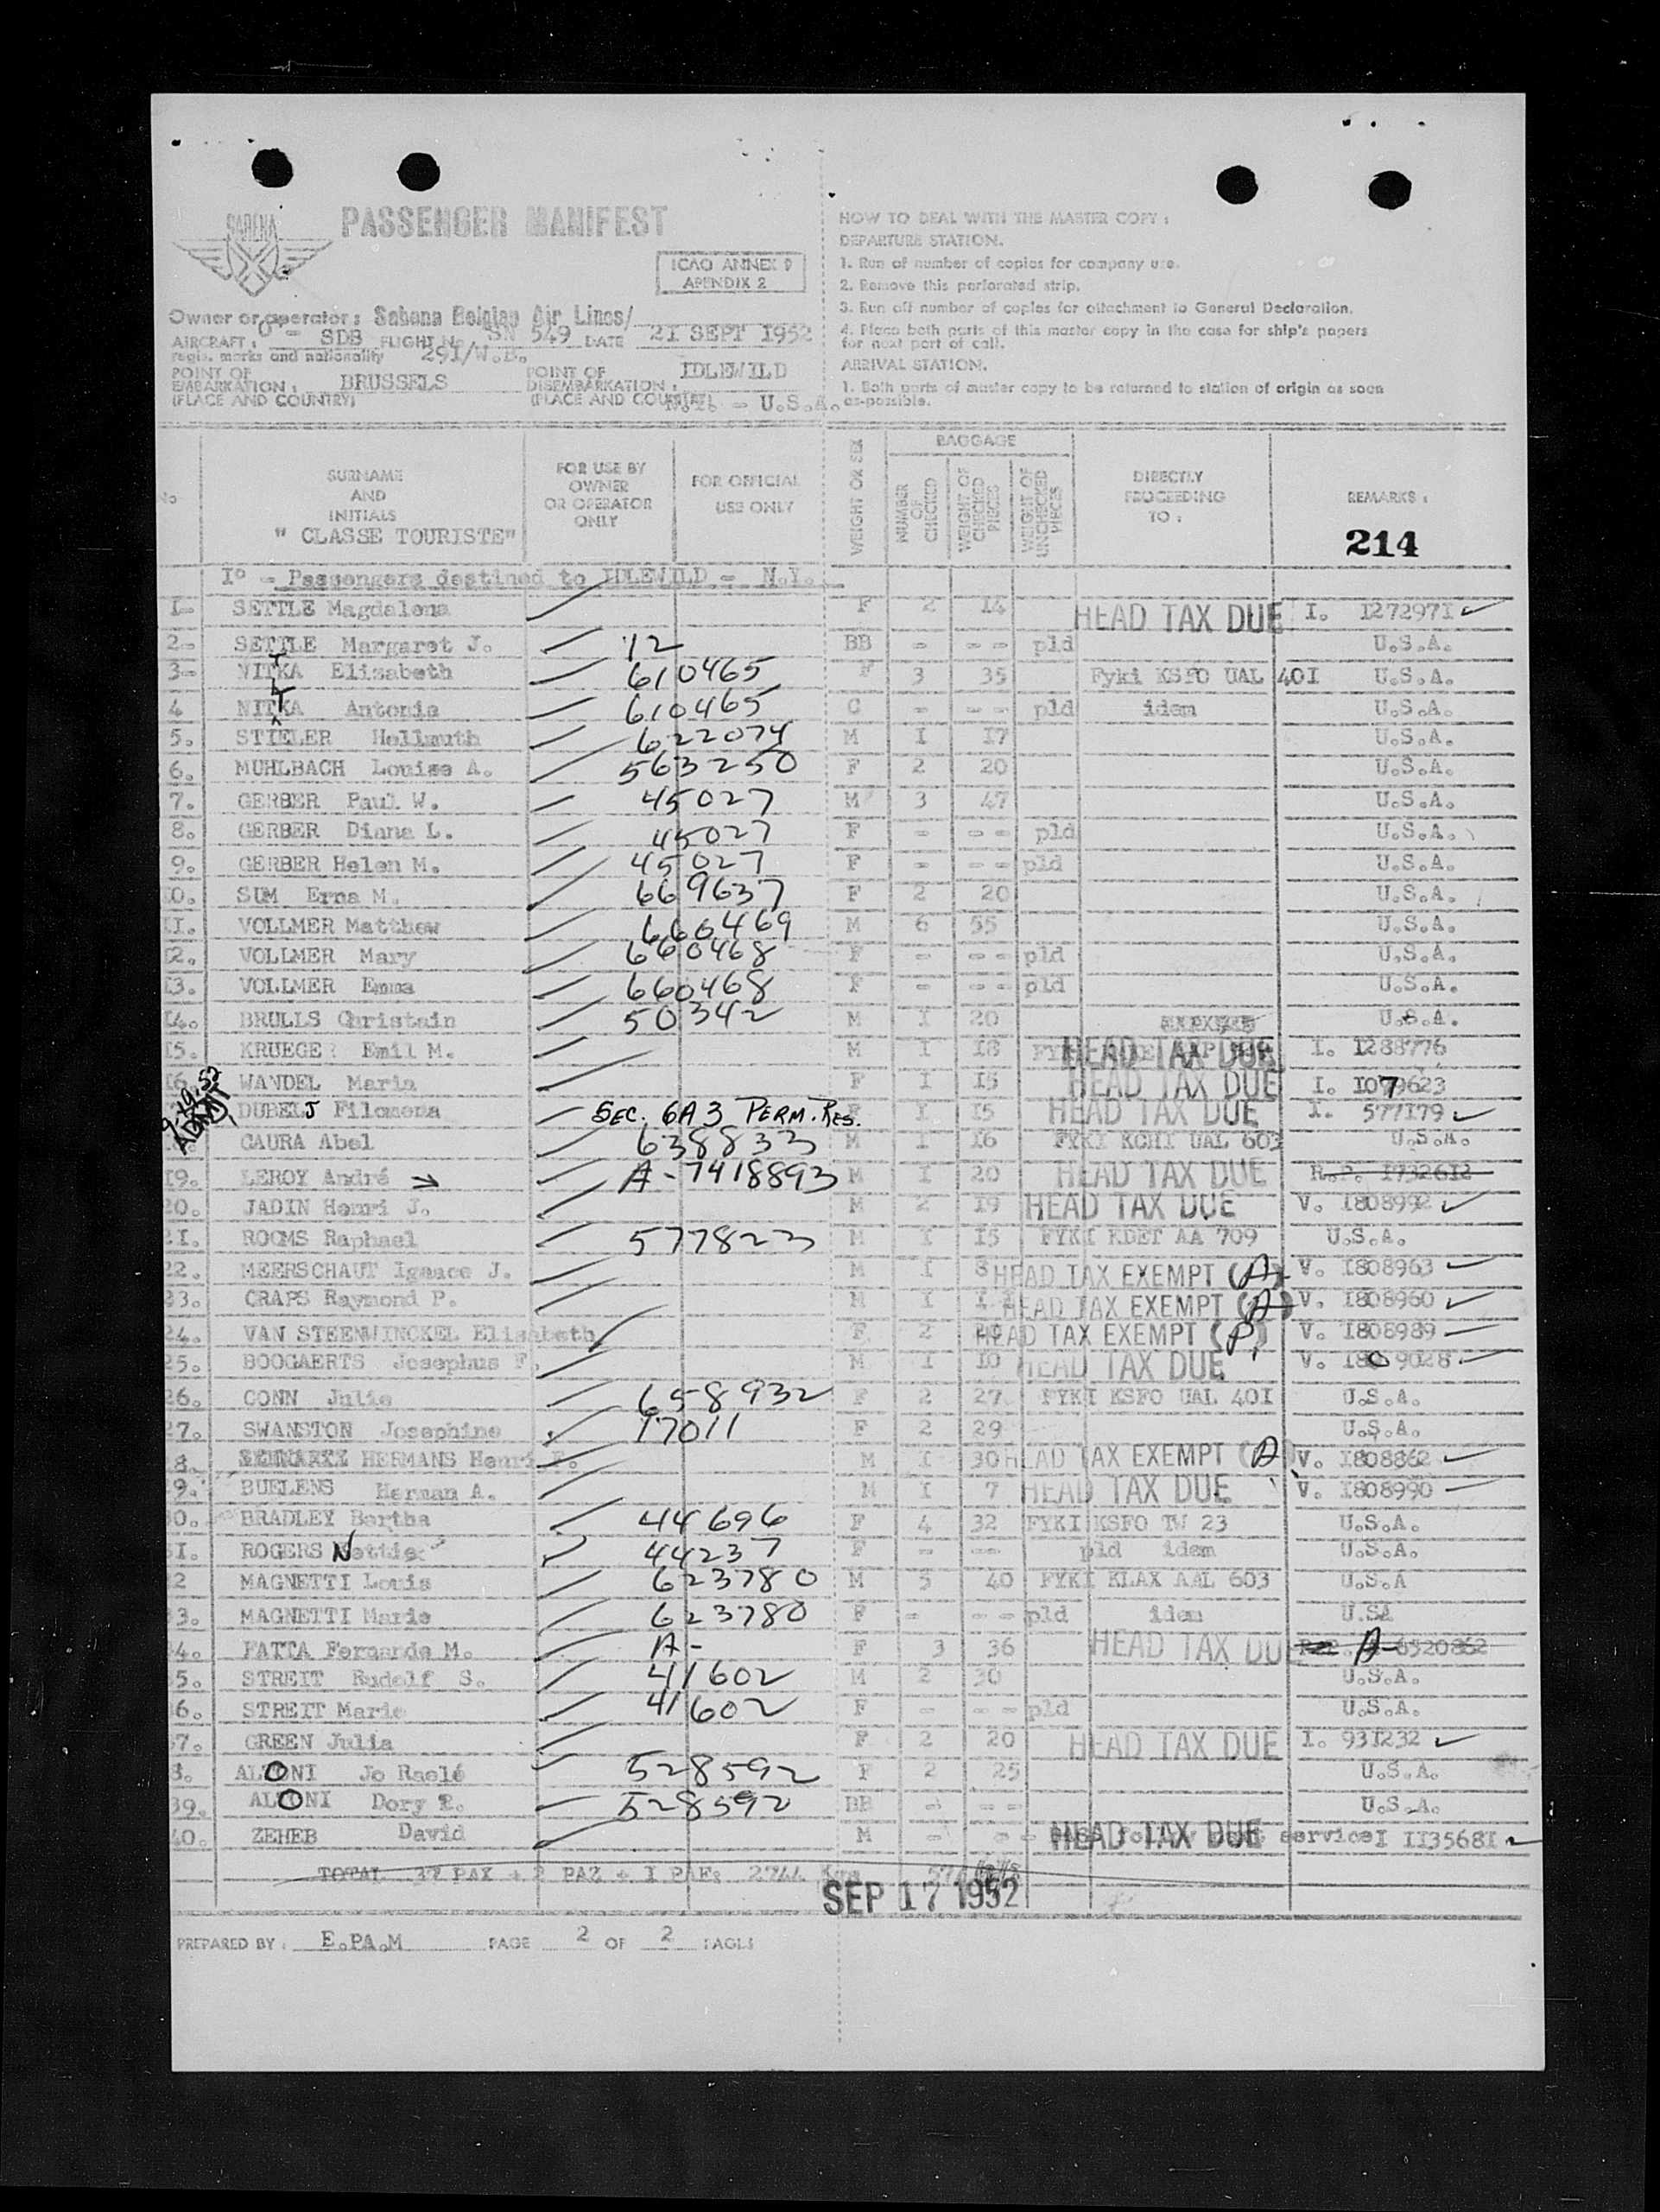 SABENA
PASSENGER MANIFEST
ICAO ANNEX 9
APENDIX 2
Owner or operator : Sabena Belgian Air Lines/
AIRCRAFT : OO - SDB FLIGHT No SN 549 DATE 21 SEPT 1952
regis. marks and nationality 291/W.B.
POINT OF EMBARKATION : BRUSSELS POINT OF DISEMBARKATION : IDLEWILD
(PLACE AND COUNTRY) (PLACE AND COUNTRY) N.Y. - U.S.A.
HOW TO DEAL WITH THE MASTER COPY :
DEPARTURE STATION.
1. Run of number of copies for company use.
2. Remove this perforated strip.
3. Run off number of copies for attachment to General Declaration.
4. Place both parts of this master copy in the case for ship's papers
for next port of call.
ARRIVAL STATION.
1. Both parts of master copy to be returned to station of origin as soon
as possible.
No SURNAME AND INITIALS FOR USE BY OWNER OR OPERATOR ONLY FOR OFFICIAL USE ONLY WEIGHT OR SEX BAGGAGE NUMBER OF CHECKED WEIGHT OF CHECKED PIECES WEIGHT OF UNCHECKED PIECES DIRECTLY PROCEEDING TO : REMARKS :
" CLASSE TOURISTE" 214
I° - Passengers destined to IDLEWILD - N.Y.
1- SETTLE Magdalena F 2 14 HEAD TAX DUE I. 1272971
2- SETTLE Margaret J. 12 BB - - - pld U.S.A.
3- NITKA Elisabeth 610465 F 3 35 Fyki KSFO UAL 401 U.S.A.
4 NITKA Antonia 610465 C - - - pld idem U.S.A.
5. STIELER Hellmuth 622074 M 1 17 U.S.A.
6. MUHLBACH Louise A. 563250 F 2 20 U.S.A.
7. GERBER Paul W. 45027 M 3 47 U.S.A.
8. GERBER Diana L. 45027 F - - - pld U.S.A.
9. GERBER Helen M. 45027 F - - - pld U.S.A.
10. SUM Erna M. 669637 F 2 20 U.S.A.
11. VOLLMER Matthew 660469 M 6 55 U.S.A.
12. VOLLMER Mary 660468 F - - - pld U.S.A.
13. VOLLMER Emma 660468 F - - - pld U.S.A.
14. BRULLS Christain 50342 M 1 20 U.S.A.
15. KRUEGER Emil M. M 1 18 HEAD TAX DUE I. 1288776
16. WANDEL Maria F 1 15 HEAD TAX DUE I. 1079623
9-19-52 ADMIT DUBELJ Filomena SEC. 6A3 PERM. RES. F 1 15 HEAD TAX DUE I. 577179
CAURA Abel 638833 M 1 16 FYKI KCHI UAL 603 U.S.A.
19. LEROY André → A-7418893 M 1 20 HEAD TAX DUE R.P. 1732612
20. JADIN Henri J. M 2 19 HEAD TAX DUE V. 1808992
21. ROOMS Raphael 577823 M 1 15 FYKI KDET AA 709 U.S.A.
22. MEERSCHAUT Ignace J. M 1 8 HEAD TAX EXEMPT (A) V. 1808963
23. CRAPS Raymond P. M 1 HEAD TAX EXEMPT (A) V. 1808960
24. VAN STEENWINCKEL Elisabeth F 2 HEAD TAX EXEMPT (P) V. 1808989
25. BOOGAERTS Josephus F. M 1 10 HEAD TAX DUE V. 1809028
26. CONN Julia 658932 F 2 27 FYKI KSFO UAL 401 U.S.A.
27. SWANSTON Josephine 17011 F 2 29 U.S.A.
8. HERMANS Henri F. M 1 30 HEAD TAX EXEMPT (A) V. 1808862
9. BUELENS Herman A. M 1 7 HEAD TAX DUE V. 1808990
30. BRADLEY Bertha 44696 F 4 32 FYKI KSFO TW 23 U.S.A.
31. ROGERS Nettie 44237 F - -- pld idem U.S.A.
2 MAGNETTI Louis 623780 M 3 40 FYKI KLAX AAL 603 U.S.A
33. MAGNETTI Marie 623780 F - - - pld idem U.SA
34. FATTA Fernande M. A- F 3 36 HEAD TAX DUE A-6520862
35. STREIT Rudolf S. 41602 M 2 30 U.S.A.
36. STREIT Marie 41602 F - - - pld U.S.A.
37. GREEN Julia F 2 20 HEAD TAX DUE I. 931232
8. ALTONI Jo Raelé 528592 F 2 25 U.S.A.
39. ALTONI Dory R. 528592 BB - - - U.S.A.
40. ZEHEB David M - - - HEAD TAX DUE service I 1135681
TOTAL 37 PAX + 2 PAZ + I PAF: 2744 Kgs
SEP 17 1952
PREPARED BY : E.PA.M PAGE 2 OF 2 PAGES